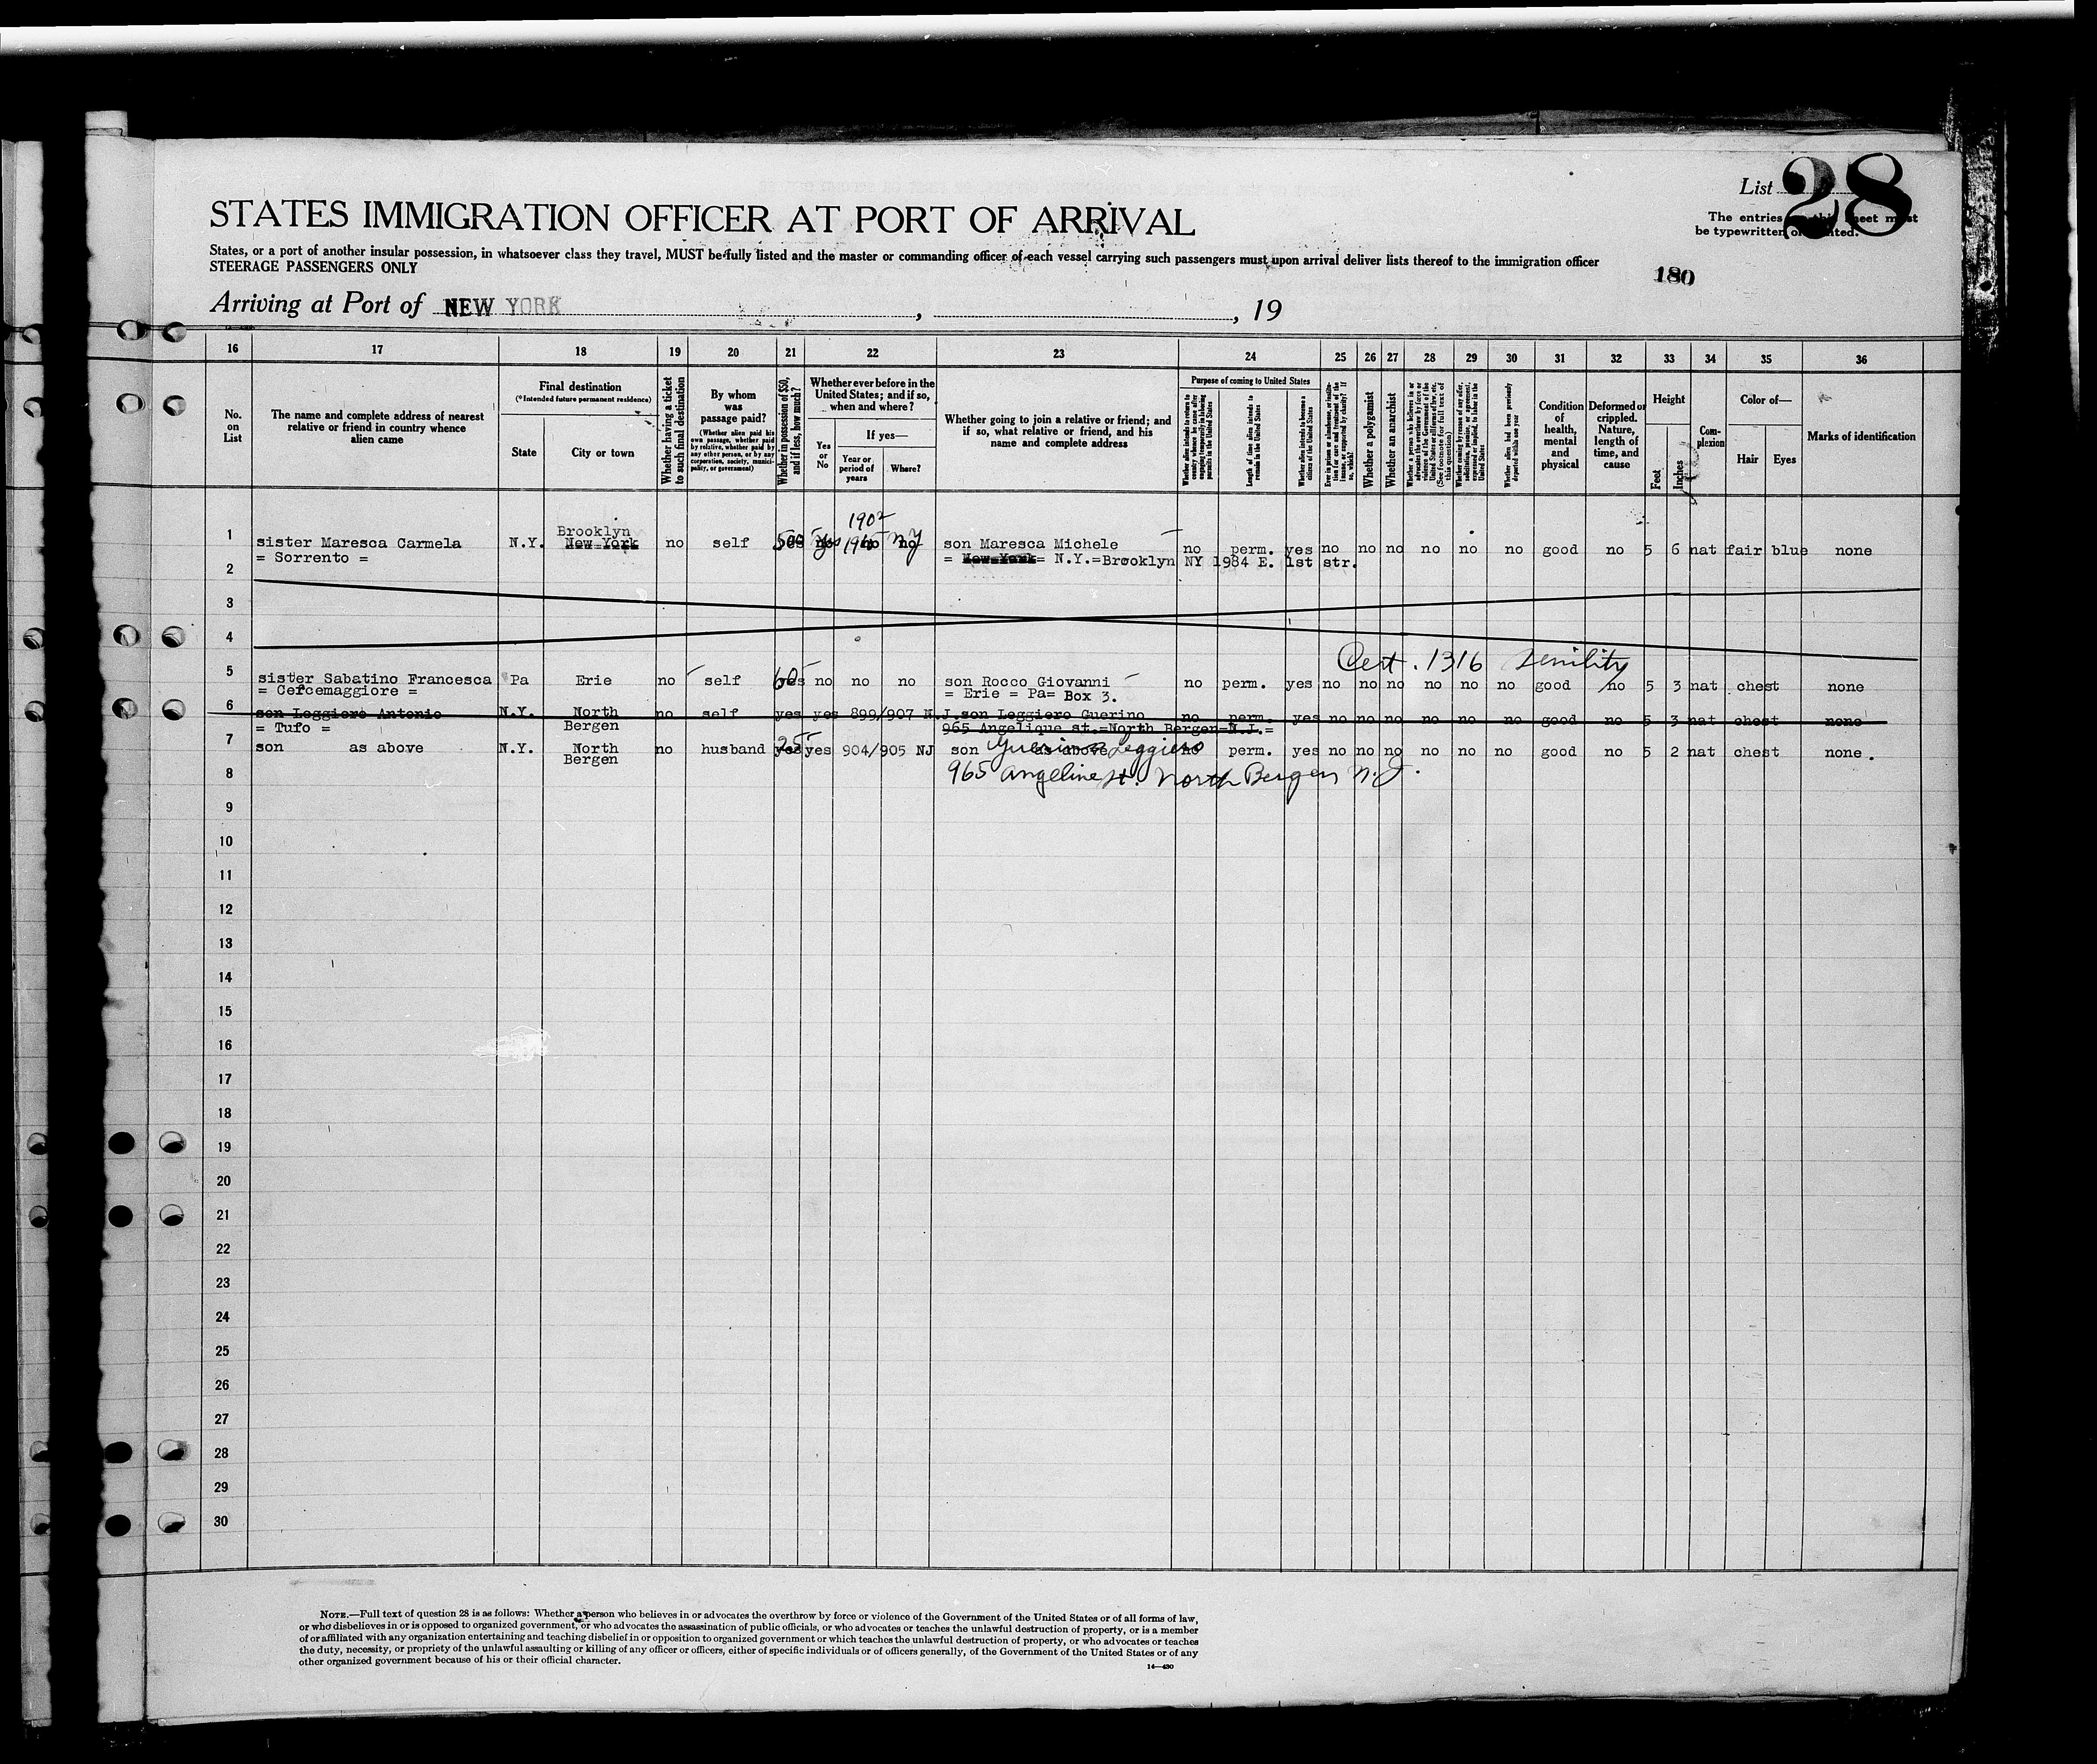 List 28
The entries on this sheet must
be typewritten or printed.
STATES IMMIGRATION OFFICER AT PORT OF ARRIVAL
States, or a port of another insular possession, in whatsoever class they travel, MUST be fully listed and the master or commanding officer of each vessel carrying such passengers must upon arrival deliver lists thereof to the immigration officer
STEERAGE PASSENGERS ONLY
180
Arriving at Port of NEW YORK , , 19
16 17 18 19 20 21 22 23 24 25 26 27 28 29 30 31 32 33 34 35 36
No. on List
The name and complete address of nearest relative or friend in country whence alien came
Final destination
(*Intended future permanent residence)
State
City or town
Whether having a ticket to such final destination
By whom was passage paid?
(Whether alien paid his own passage, whether paid by relative, whether paid by any other person, or by any corporation, society, municipality, or government)
Whether in possession of $50, and if less, how much?
Whether ever before in the United States; and if so, when and where?
Yes or No
If yes—
Year or period of years
Where?
Whether going to join a relative or friend; and if so, what relative or friend, and his name and complete address
Purpose of coming to United States
Whether alien intends to return to country whence he came after engaging temporarily in laboring pursuits in the United States
Length of time alien intends to remain in the United States
Whether alien intends to become a citizen of the United States
Ever in prison or almshouse, or institution for care and treatment of the insane, or supported by charity? If so, which?
Whether a polygamist
Whether an anarchist
Whether a person who believes in or advocates the overthrow by force or violence of the Government of the United States or all forms of law, etc. (See footnote for full text of this question)
Whether coming by reason of any offer, solicitation, promise, or agreement, expressed or implied, to labor in the United States
Whether alien had been previously deported within one year
Condition of health, mental and physical
Deformed or crippled. Nature, length of time, and cause
Height
Feet
Inches
Complexion
Color of—
Hair
Eyes
Marks of identification
1902
1 sister Maresca Carmela N.Y. Brooklyn New York no self 500 yes no NY son Maresca Michele no perm. yes no no no no no no good no 5 6 nat fair blue none
= Sorrento = = New York = N.Y.=Brooklyn NY 1984 E. 1st str.
2
3
4
Cert. 1316 Senility
5 sister Sabatino Francesca Pa Erie no self 60 yes no no no son Rocco Giovanni no perm. yes no no no no no no good no 5 3 nat chest none
= Cercemaggiore = = Erie = Pa= Box 3.
6 son Leggiero Antonio N.Y. North Bergen no self yes yes 899/907 N.J. son Leggiero Guerino no perm. yes no no no no no no good no 5 3 nat chest none
= Tufo = 965 Angelique st.=North Bergen=N.J.=
7 son as above N.Y. North Bergen no husband yes 25 yes 904/905 NJ son as above Guerino Leggiero no perm. yes no no no no no no good no 5 2 nat chest none.
965 Angeline st. North Bergen N.J.
8
9
10
11
12
13
14
15
16
17
18
19
20
21
22
23
24
25
26
27
28
29
30
NOTE.—Full text of question 28 is as follows: Whether a person who believes in or advocates the overthrow by force or violence of the Government of the United States or of all forms of law,
or who disbelieves in or is opposed to organized government, or who advocates the assassination of public officials, or who advocates or teaches the unlawful destruction of property, or is a member
of or affiliated with any organization entertaining and teaching disbelief in or opposition to organized government or which teaches the unlawful destruction of property, or who advocates or teaches
the duty, necessity, or propriety of the unlawful assaulting or killing of any officer or officers, either of specific individuals or of officers generally, of the Government of the United States or of any
other organized government because of his or their official character.
14—430